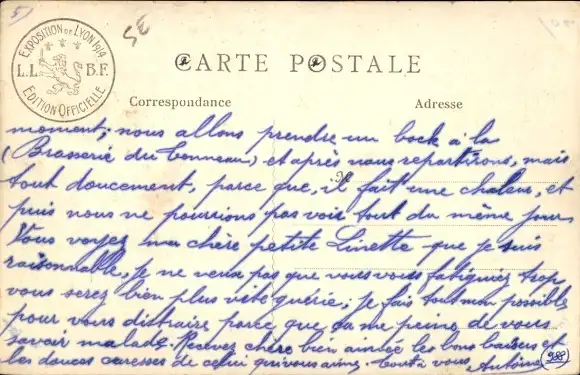 5)
SE
EXPOSITION DE LYON 1914
L.L. B.F.
EDITION OFFICIELLE
CARTE POSTALE
Correspondance
Adresse
moment; nous allons prendre un bock à la
(Brasserie du Tonneau) et après nous repartirons, mais
tout doucement, parce que, il fait une chaleur, et
puis nous ne pourrions pas voir tout du même jour
Vous voyez ma chère petite Linette que je suis
raisonnable, je ne veux pas que vous vous fatiguiez trop
vous serez bien plus vite guérie; je fais tout mon possible
pour vous distraire parce que ça me peine de vous
savoir malade. Recevez chère bien aimée les bons baisers et
les douces caresses de celui qui vous aime. tout à vous Antoine
988